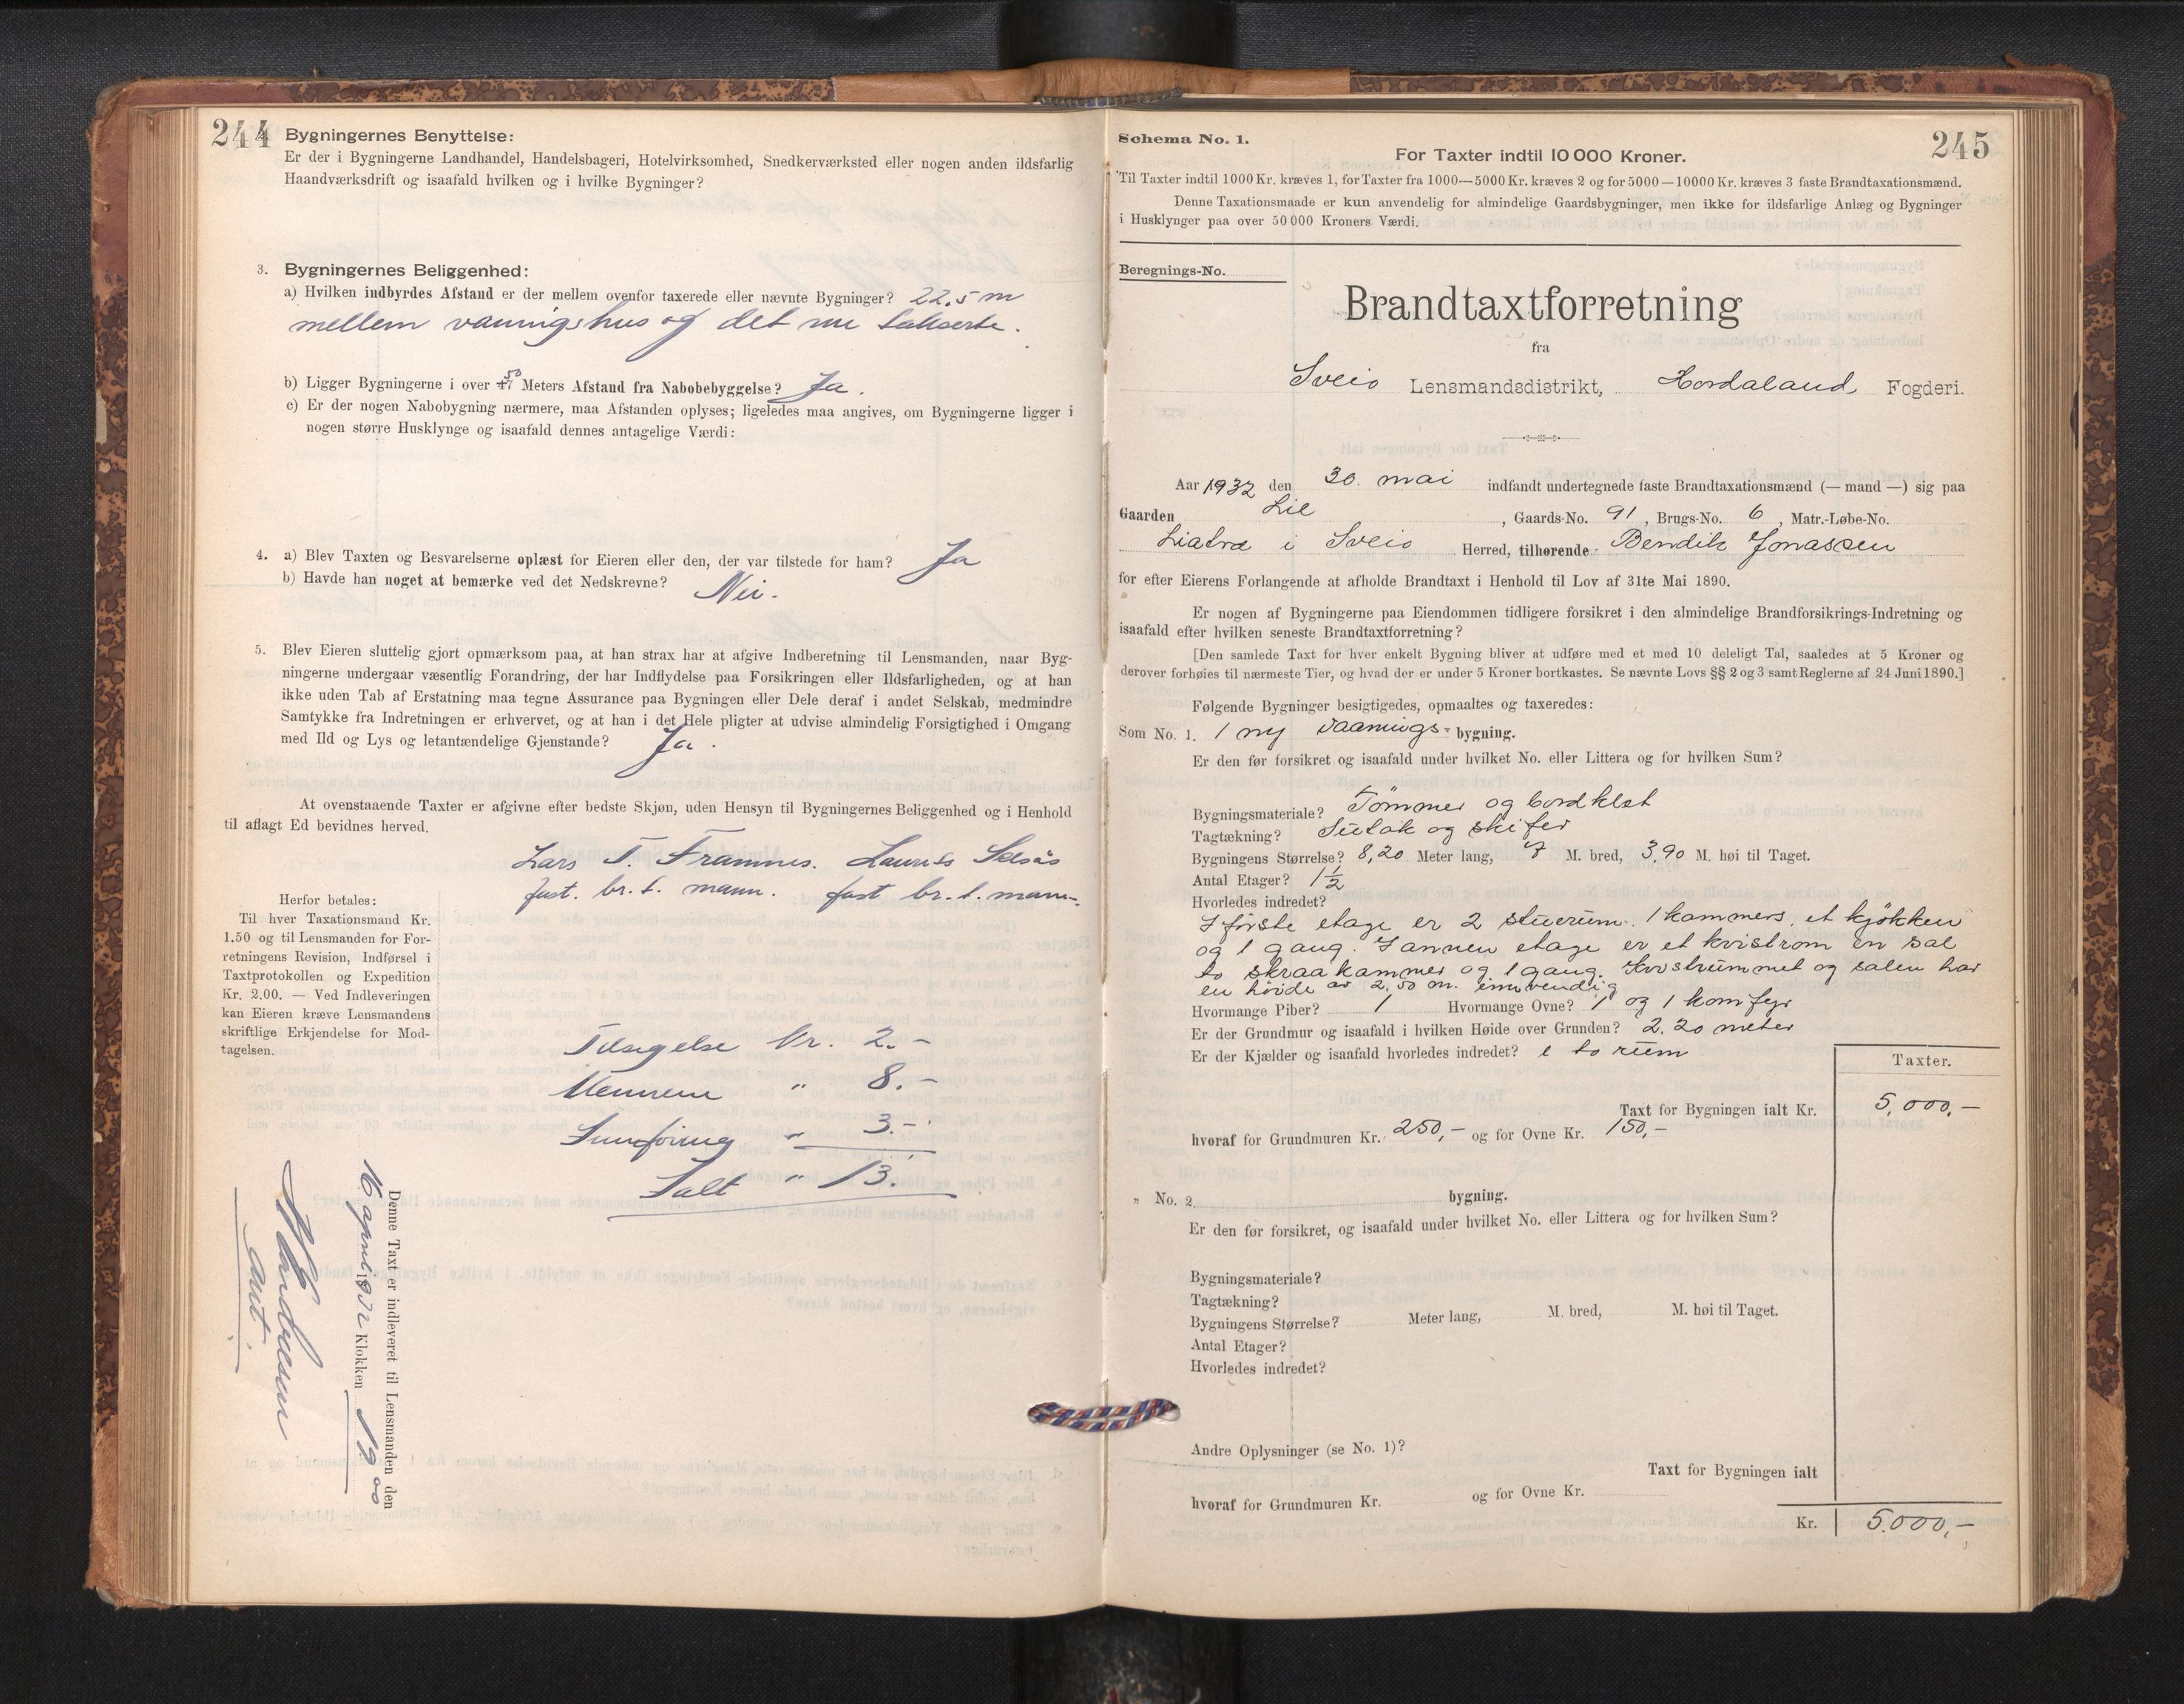 244
Bygningernes Benyttelse:
Er der i Bygningerne Landhandel, Handelsbageri, Hotelvirksomhed, Snedkerværksted eller nogen anden ildsfarlig
Haandværksdrift og isaafald hvilken og i hvilke Bygninger?
3. Bygningernes Beliggenhed:
a) Hvilken indbyrdes Afstand er der mellem ovenfor taxerede eller nævnte Bygninger? 22.5 m
mellem vaaningshus og det nu takserte.
b) Ligger Bygningerne i over 50 Meters Afstand fra Nabobebyggelse? Ja.
c) Er der nogen Nabobygning nærmere, maa Afstanden oplyses; ligeledes maa angives, om Bygningerne ligger i
nogen større Husklynge og isaafald dennes antagelige Værdi:
4. a) Blev Taxten og Besvarelserne oplæst for Eieren eller den, der var tilstede for ham? Ja
b) Havde han noget at bemærke ved det Nedskrevne? Nei.
5. Blev Eieren sluttelig gjort opmærksom paa, at han strax har at afgive Indberetning til Lensmanden, naar Byg-
ningerne undergaar væsentlig Forandring, der har Indflydelse paa Forsikringen eller Ildsfarligheden, og at han
ikke uden Tab af Erstatning maa tegne Assurance paa Bygningen eller Dele deraf i andet Selskab, medmindre
Samtykke fra Indretningen er erhvervet, og at han i det Hele pligter at udvise almindelig Forsigtighed i Omgang
med Ild og Lys og letantændelige Gjenstande? Ja.
At ovenstaaende Taxter er afgivne efter bedste Skjøn, uden Hensyn til Bygningernes Beliggenhed og i Henhold
til aflagt Ed bevidnes herved.
Lars T. Framnes. Laurits
fast. br. t. mann. fast br. t. mann.
Herfor betales:
Til hver Taxationsmand Kr.
1.50 og til Lensmanden for For-
retningens Revision, Indførsel i
Taxtprotokollen og Expedition
Kr. 2.00. — Ved Indleveringen
kan Eieren kræve Lensmandens
skriftlige Erkjendelse for Mod-
tagelsen.
Tilsigelse kr. 2.-
Mennene " 8.-
Innføring " 3.-
Ialt " 13.
Denne Taxt er indleveret til Lensmanden den
16 april 1932 Klokken 19 00
Andresen
ass.
Schema No. 1.
245
For Taxter indtil 10 000 Kroner.
Til Taxter indtil 1000 Kr. kræves 1, for Taxter fra 1000—5000 Kr. kræves 2 og for 5000—10000 Kr. kræves 3 faste Brandtaxationsmænd.
Denne Taxationsmaade er kun anvendelig for almindelige Gaardsbygninger, men ikke for ildsfarlige Anlæg og Bygninger
i Husklynger paa over 50 000 Kroners Værdi.
Beregnings-No.
Brandtaxtforretning
fra
Sveio Lensmandsdistrikt, Hordaland Fogderi.
Aar 1932 den 30. mai indfandt undertegnede faste Brandtaxationsmænd (— mand —) sig paa
Gaarden Lie, Gaards-No. 91, Brugs-No. 6, Matr.-Løbe-No.
Liatræ i Sveio Herred, tilhørende Bendik Jonassen
for efter Eierens Forlangende at afholde Brandtaxt i Henhold til Lov af 31te Mai 1890.
Er nogen af Bygningerne paa Eiendommen tidligere forsikret i den almindelige Brandforsikrings-Indretning og
isaafald efter hvilken seneste Brandtaxtforretning?
[Den samlede Taxt for hver enkelt Bygning bliver at udføre med et med 10 deleligt Tal, saaledes at 5 Kroner og
derover forhøies til nærmeste Tier, og hvad der er under 5 Kroner bortkastes. Se nævnte Lovs §§ 2 og 3 samt Reglerne af 24 Juni 1890.]
Følgende Bygninger besigtigedes, opmaaltes og taxeredes:
Som No. 1. 1 ny vaanings- bygning.
Er den før forsikret og isaafald under hvilket No. eller Littera og for hvilken Sum?
Bygningsmateriale? Tömmer og bordklæt
Tagtækning? Sutak og skifer
Bygningens Størrelse? 8,20 Meter lang, 7 M. bred, 3,90 M. høi til Taget.
Antal Etager? 1 1/2
Hvorledes indredet?
I første etage er 2 stuerum. 1 kammers, et kjökken
og 1 gang. I annen etage er et kvistrom en sal
to skraakammer og 1 gang. Kvistrummet og salen har
en höide av 2.50 m. innvendig
Hvormange Piber? 1 Hvormange Ovne? 1 og 1 komfyr
Er der Grundmur og isaafald i hvilken Høide over Grunden? 2.20 meter
Er der Kjælder og isaafald hvorledes indredet? i to rum
Taxter.
Taxt for Bygningen ialt Kr. 5,000,-
hvoraf for Grundmuren Kr. 250,- og for Ovne Kr. 150,-
" No. 2. bygning.
Er den før forsikret, og isaafald under hvilket No. eller Littera og for hvilken Sum?
Bygningsmateriale?
Tagtækning?
Bygningens Størrelse? Meter lang, M. bred, M. høi til Taget.
Antal Etager?
Hvorledes indredet?
Andre Oplysninger (se No. 1)?
Taxt for Bygningen ialt
hvoraf for Grundmuren Kr. og for Ovne Kr.
Kr. 5.000,-